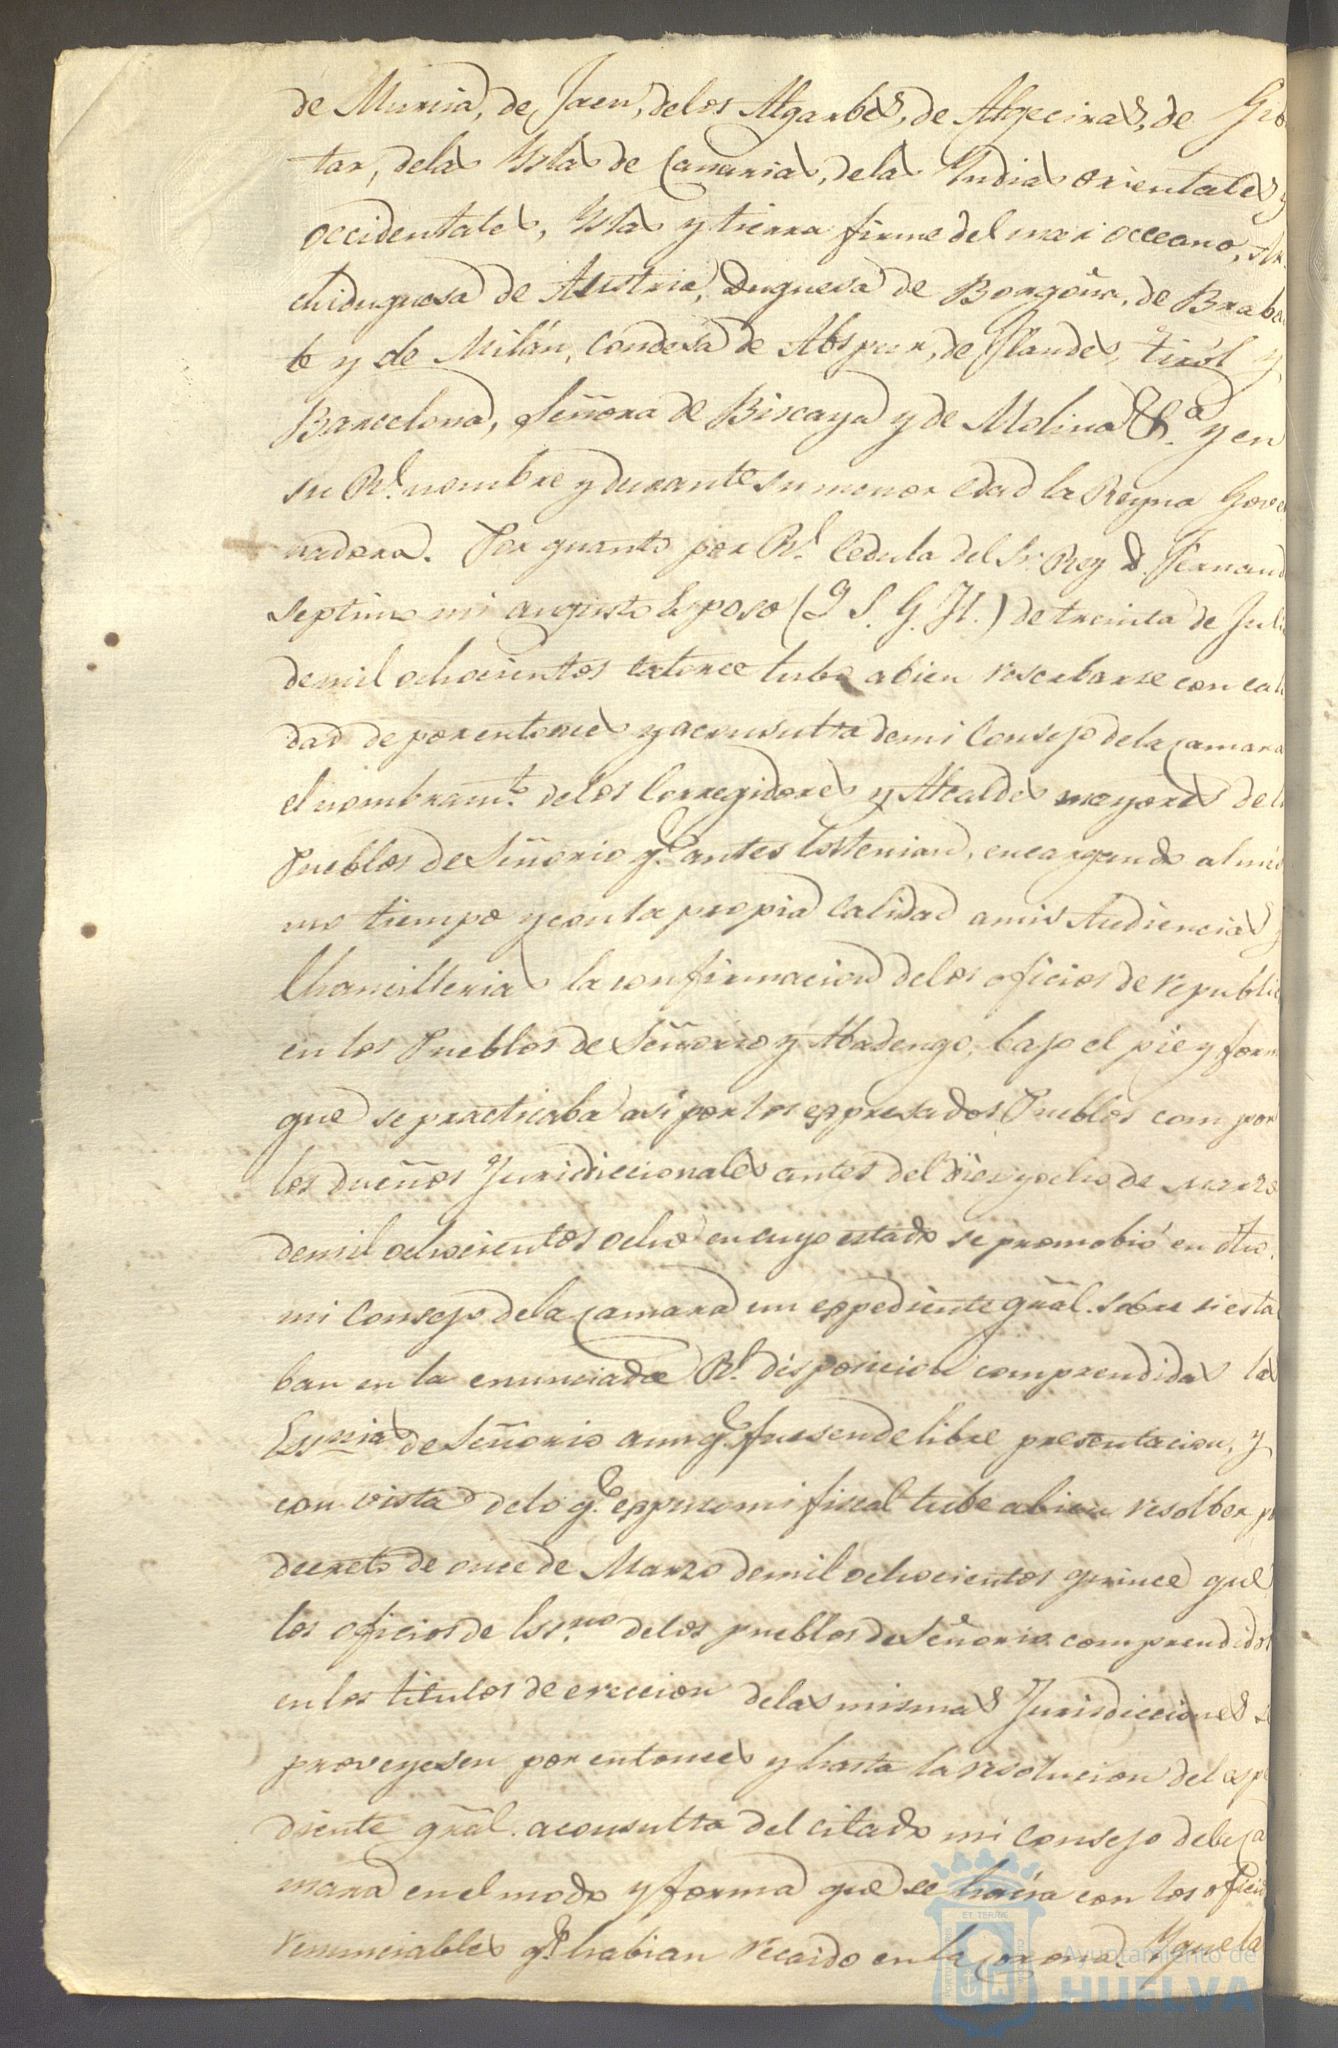 de Murcia, de Jaen, delos Algarbes, de Algeciras, de Gib
tar, delas Yslas de Canarias, delas Yndias orientales y
occidentales, Yslas y tierra firme del mar occeano, Ar
chiduquesa de Austria, Duquesa de Borgoña, de Braba
te y de Milán, Condesa de Abspur, de Flandes, Tiról y
Barcelona, Señora de Biscaya y de Molina &.ª y en
su R.l nombre y durante su menor edad la Reyna Gover
nadora. Por quanto por R.l Cedula del Sr. Rey D. Fernand
septimo mi augusto Esposo (Q. S. G. H.) de treinta de Juli
de mil ochocientos catorce tubo abien reserbarse con cali
dad de por entonces y aconsulta demi Consejo dela Camara
el nombram.to delos Corregidores y Alcaldes mayores de l
Pueblos de Señorio q.e antes los tenian, encargando al mis
mo tiempo y con la propia calidad amis Audiencias y
Chancillerias la confirmacion delos oficios de republic
en los Pueblos de Señorio y Abadengo, bajo el pie y form
que se practicaba asi por los expresados Pueblos com por
los dueños Juridiccionales antes del diez y ocho de marzo
demil ochocientos ocho en cuyo estado se promobió en dho.
mi Consejo dela Camara un expediente grãl. sobre si esta
ban en la enunciada R.l disposicion comprendidas las
Ess.nias de Señorio aunq.e fuesen de libre presentacion, y
con vista delo q.e expuso mi fiscal tube abien resolber p
decreto de once de Marzo demil ochocientos quince que
los oficios de Ess.no delos pueblos de Señorio comprendidos
en los titulos de ereccion delas mismas Jurisdicciones se
proveyesen por entonces y hasta la resolucion del espe
diente grãl. aconsulta del citado mi Consejo dela Ca
mara en el modo y forma que se hacia con los oficio
renunciables q.e habian recaido en la Corona. Y que la
Ayuntamiento de
HUELVA